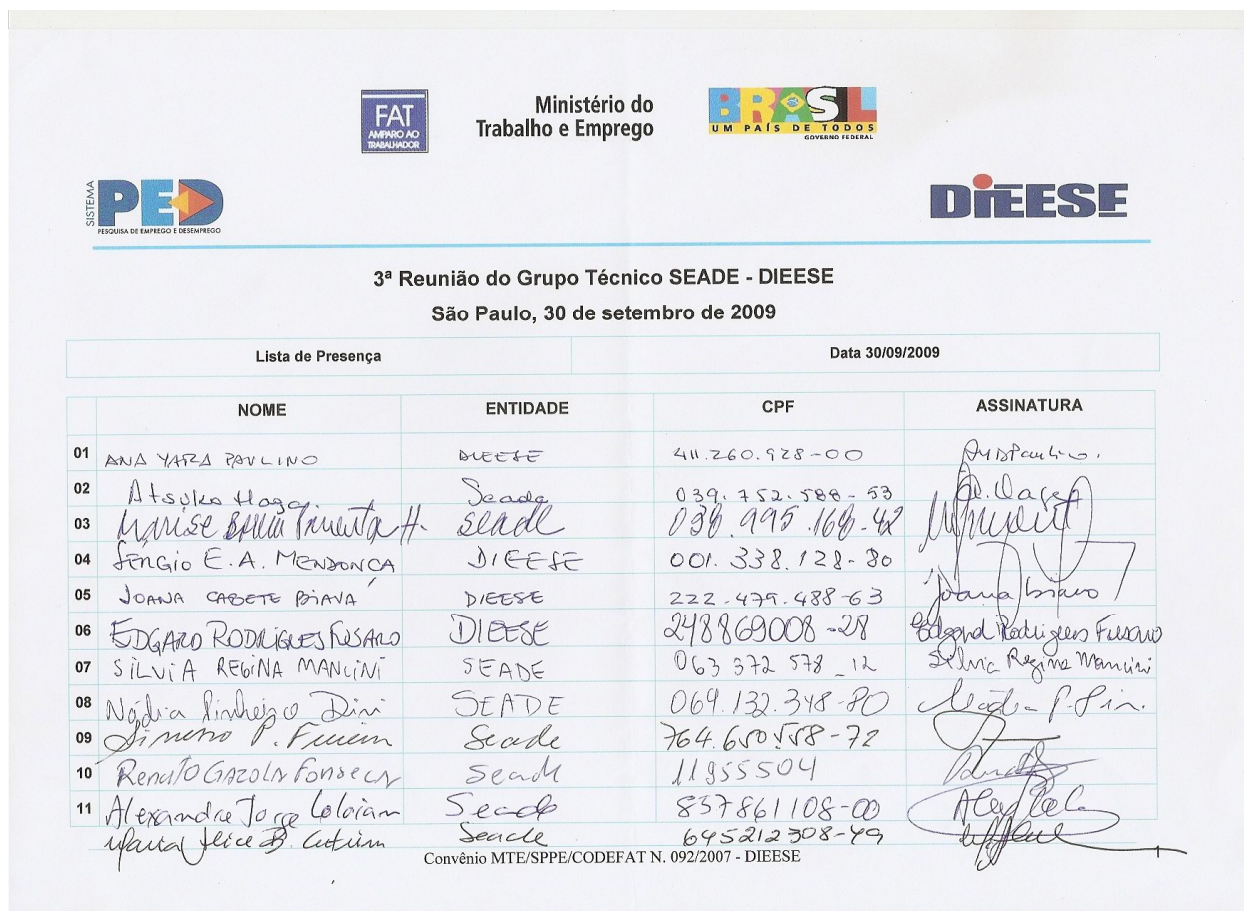 FAT
AMPARO AO
TRABALHADOR
Ministério do
Trabalho e Emprego
BRASIL
UM PAÍS DE TODOS
GOVERNO FEDERAL
SISTEMA
PED
PESQUISA DE EMPREGO E DESEMPREGO
DIEESE
3ª Reunião do Grupo Técnico SEADE - DIEESE
São Paulo, 30 de setembro de 2009
Lista de Presença Data 30/09/2009
NOME ENTIDADE CPF ASSINATURA
01 ANA YARA PAULINO DIEESE 411.260.928-00
02 Atsuko Haga Seade 039.752.588-53
03 Marise Pimenta H. Seade 038.995.168-42
04 Sérgio E. A. MENDONÇA DIEESE 001.338.128-80
05 JOANA CABETE BIAVA DIEESE 222.479.488-63 Joana Biava
06 EDGARD RODRIGUES FUSARO DIEESE 248869008-28 Edgard Rodrigues Fusaro
07 SILVIA REGINA MANCINI SEADE 063 372 578_12 Silvia Regina Mancini
08 Nádia Pinheiro Dini SEADE 069.132.348-80 Nádia P. Din.
09 P. Seade 764.650.558-72
10 Renato GAZOLA Fonseca Seade 11955504
11 Alexandre Jorge Loloian Seade 857861108-00
Maria Alice B. Cutrim Seade 645212308-49
Convênio MTE/SPPE/CODEFAT N. 092/2007 - DIEESE